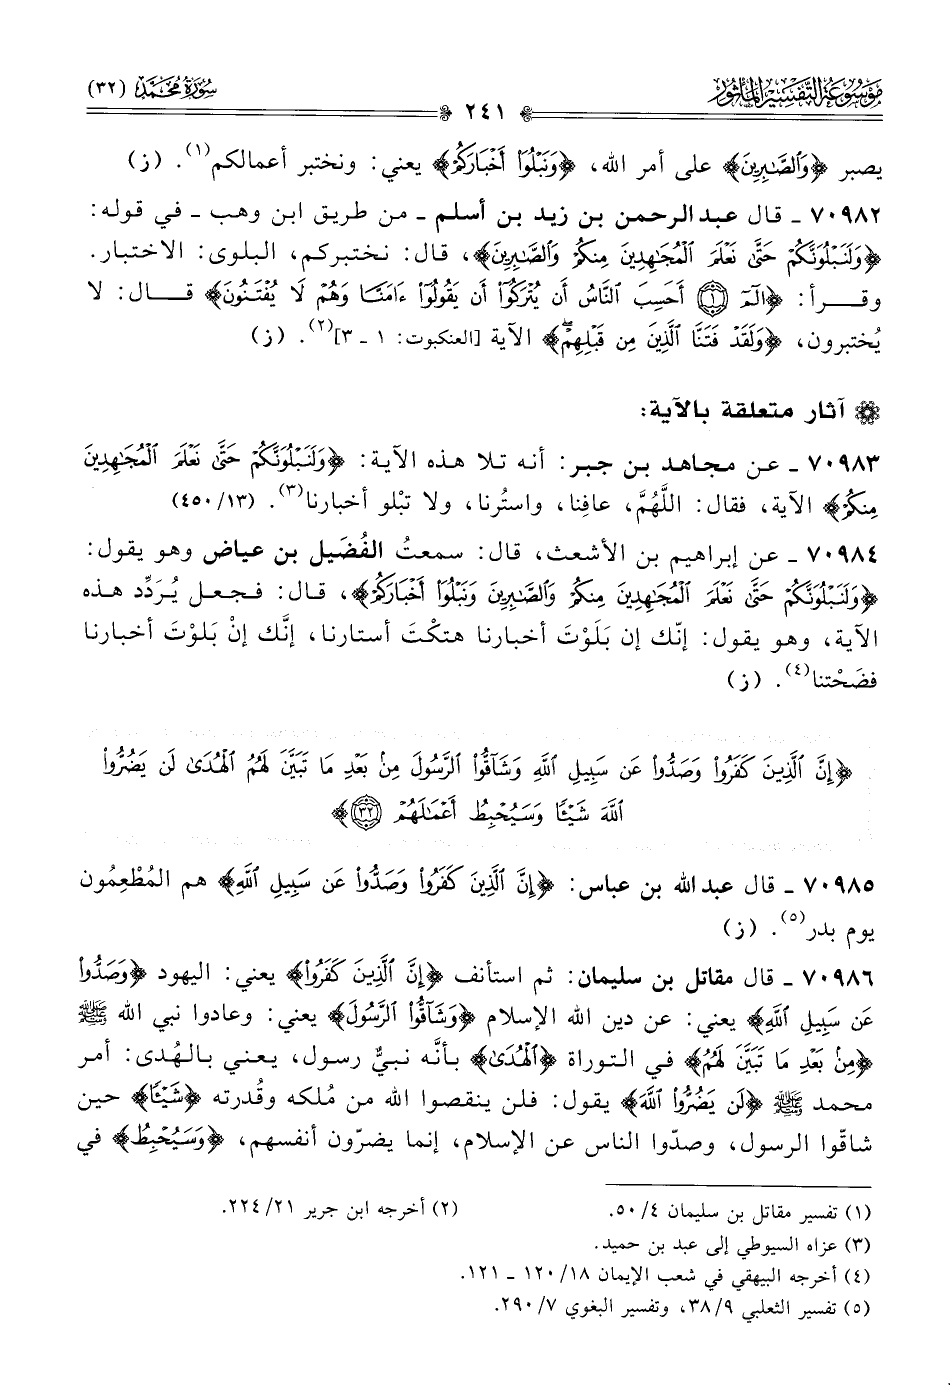 مَوْسُوعَةُ التَّفْسِيْرِ المَأْثُورِ
سُورَةُ مُحَمَّد (٣٢)
٢٤١
يصبر ﴿وَٱلصَّٰبِرِينَ﴾ على أمر الله، ﴿وَنَبۡلُوَاْ أَخۡبَارَكُمۡ﴾ يعني: ونختبر أعمالكم(١). (ز)
٧٠٩٨٢ ـ قال عبد الرحمن بن زيد بن أسلم ـ من طريق ابن وهب ـ في قوله:
﴿وَلَنَبۡلُوَنَّكُمۡ حَتَّىٰ نَعۡلَمَ ٱلۡمُجَٰهِدِينَ مِنكُمۡ وَٱلصَّٰبِرِينَ﴾، قال: نختبركم، البلوى: الاختبار.
وقرأ: ﴿الٓمٓ ١ أَحَسِبَ ٱلنَّاسُ أَن يُتۡرَكُوٓاْ أَن يَقُولُوٓاْ ءَامَنَّا وَهُمۡ لَا يُفۡتَنُونَ﴾ قال: لا
يُختبرون، ﴿وَلَقَدۡ فَتَنَّا ٱلَّذِينَ مِن قَبۡلِهِمۡۖ﴾ الآية [العنكبوت: ١ ـ ٣](٢). (ز)
آثار متعلقة بالآية:
٧٠٩٨٣ ـ عن مجاهد بن جبر: أنه تلا هذه الآية: ﴿وَلَنَبۡلُوَنَّكُمۡ حَتَّىٰ نَعۡلَمَ ٱلۡمُجَٰهِدِينَ
مِنكُمۡ﴾ الآية، فقال: اللَّهُمَّ، عافِنا، واستُرنا، ولا تبْلو أخبارنا(٣). (١٣/ ٤٥٠)
٧٠٩٨٤ ـ عن إبراهيم بن الأشعث، قال: سمعتُ الفُضَيل بن عياض وهو يقول:
﴿وَلَنَبۡلُوَنَّكُمۡ حَتَّىٰ نَعۡلَمَ ٱلۡمُجَٰهِدِينَ مِنكُمۡ وَٱلصَّٰبِرِينَ وَنَبۡلُوَاْ أَخۡبَارَكُمۡ﴾، قال: فجعل يُرَدِّد هذه
الآية، وهو يقول: إنّك إن بَلَوْتَ أخبارنا هتكْتَ أستارنا، إنَّك إنْ بَلوْتَ أخبارنا
فضَحْتنا(٤). (ز)
﴿إِنَّ ٱلَّذِينَ كَفَرُواْ وَصَدُّواْ عَن سَبِيلِ ٱللَّهِ وَشَآقُّواْ ٱلرَّسُولَ مِنۢ بَعۡدِ مَا تَبَيَّنَ لَهُمُ ٱلۡهُدَىٰ لَن يَضُرُّواْ
ٱللَّهَ شَيۡـٔٗا وَسَيُحۡبِطُ أَعۡمَٰلَهُمۡ ٣٢﴾
٧٠٩٨٥ ـ قال عبد الله بن عباس: ﴿إِنَّ ٱلَّذِينَ كَفَرُواْ وَصَدُّواْ عَن سَبِيلِ ٱللَّهِ﴾ هم المُطْعِمُون
يوم بدر(٥). (ز)
٧٠٩٨٦ ـ قال مقاتل بن سليمان: ثم استأنف ﴿إِنَّ ٱلَّذِينَ كَفَرُواْ﴾ يعني: اليهود ﴿وَصَدُّواْ
عَن سَبِيلِ ٱللَّهِ﴾ يعني: عن دين الله الإسلام ﴿وَشَآقُّواْ ٱلرَّسُولَ﴾ يعني: وعادوا نبي الله ﷺ
﴿مِنۢ بَعۡدِ مَا تَبَيَّنَ لَهُمُ﴾ في التوراة ﴿ٱلۡهُدَىٰ﴾ بأنَّه نبيٌّ رسول، يعني بالهُدى: أمر
محمد ﷺ ﴿لَن يَضُرُّواْ ٱللَّهَ﴾ يقول: فلن ينقصوا الله من مُلكه وقُدرته ﴿شَيۡـٔٗا﴾ حين
شاقّوا الرسول، وصدّوا الناس عن الإسلام، إنما يضرّون أنفسهم، ﴿وَسَيُحۡبِطُ﴾ في
(١) تفسير مقاتل بن سليمان ٤/ ٥٠. (٢) أخرجه ابن جرير ٢١/ ٢٢٤.
(٣) عزاه السيوطي إلى عبد بن حميد.
(٤) أخرجه البيهقي في شعب الإيمان ١٨/ ١٢٠ ـ ١٢١.
(٥) تفسير الثعلبي ٩/ ٣٨، وتفسير البغوي ٧/ ٢٩٠.